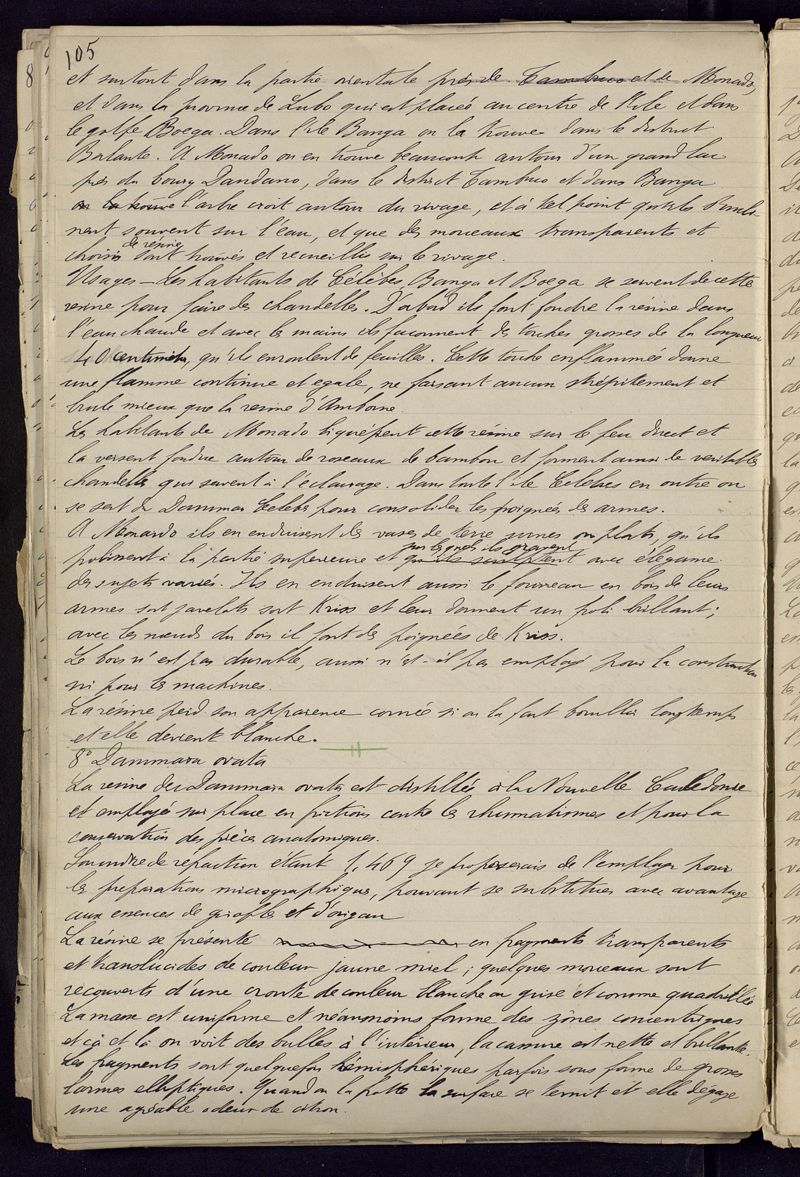 105
et surtout dans la partie orientale près de Tambuco et de Monado,
et dans la province de Lubo qui est placée au centre de l'île et dans
le golfe Boega. Dans l'île Banga on la trouve dans le district
A Monado on en trouve beaucoup autour d'un grand lac
près du bourg Dandano, dans le district Tambuco et dans Banga
on la trouve l'arbre croit autour du rivage, et à tel point qu'ils
nent souvent sur l'eau, et que des morceaux transparents et
choisis de résine sont trouvés et recueillis sur le rivage.
Usages – Les habitants de Célèbes, Banga et Boega se servent de cette
résine pour faire des chandelles. D'abord ils font fondre la résine dans
l'eau chaude et avec les mains ils façonnent des torches grosses de la longueur
40 centimètres, qu'ils enroulent de feuilles. Cette torche enflammée donne
une flamme continue et egale, ne faisant aucun strépitement et
brule mieux que la resine d'Amboine.
Les habitants de Monado liquéfient cette résine sur le feu direct et
la versent fondue autour de roseaux de bambou et forment ainsi de veritables
chandelles qui servent à l'eclairage. Dans toute l'île Celebes en outre on
se sert du Dammar Celebes pour consolider les poignées des armes.
A Monardo ils en enduisent des vases de terre unes ou plats, qu'ils
à la partie superieure et sur lesquels ils gravent qu'ils sculptent avec élégance
des sujets variés. Ils en enduisent aussi le fourreau en bois de leurs
armes soit javelots soit Kriss et leur donnent un poli brillant;
avec les nœuds du bois il font des poignées de Kriss.
Le bois n'est pas durable, aussi n'est-il pas employé pour la construction
ni pour les machines.
La résine perd son apparence cornée si on la fait bouillir longtemps
et elle devient blanche.
8° Dammara ovata
La resine du Dammara ovata est distillée à la Nouvelle Caledonie
et employé sur place en frictions contre les rhumatismes et pour la
conservation des pièces anatomiques.
Son indice de refraction étant 1,469 je proposerais de l'employer pour
les preparations micrographiques, pouvant se substituer avec avantage
aux essences de girofle et d'origan
La résine se présente en fragments transparents
et translucides de couleur jaune miel; quelques morceaux sont
recouverts d'une croute de couleur blanche ou grise et comme quadrillée
La masse est uniforme et néanmoins forme des zônes concentriques
et çà et là on voit des bulles à l'intérieur, la cassure est nette et brillante.
Les fragments sont quelquefois hémisphériques parfois sous forme de grosses
larmes elliptiques. Quand on la frotte la surface se ternit et elle dégage
une agréable odeur de citron.